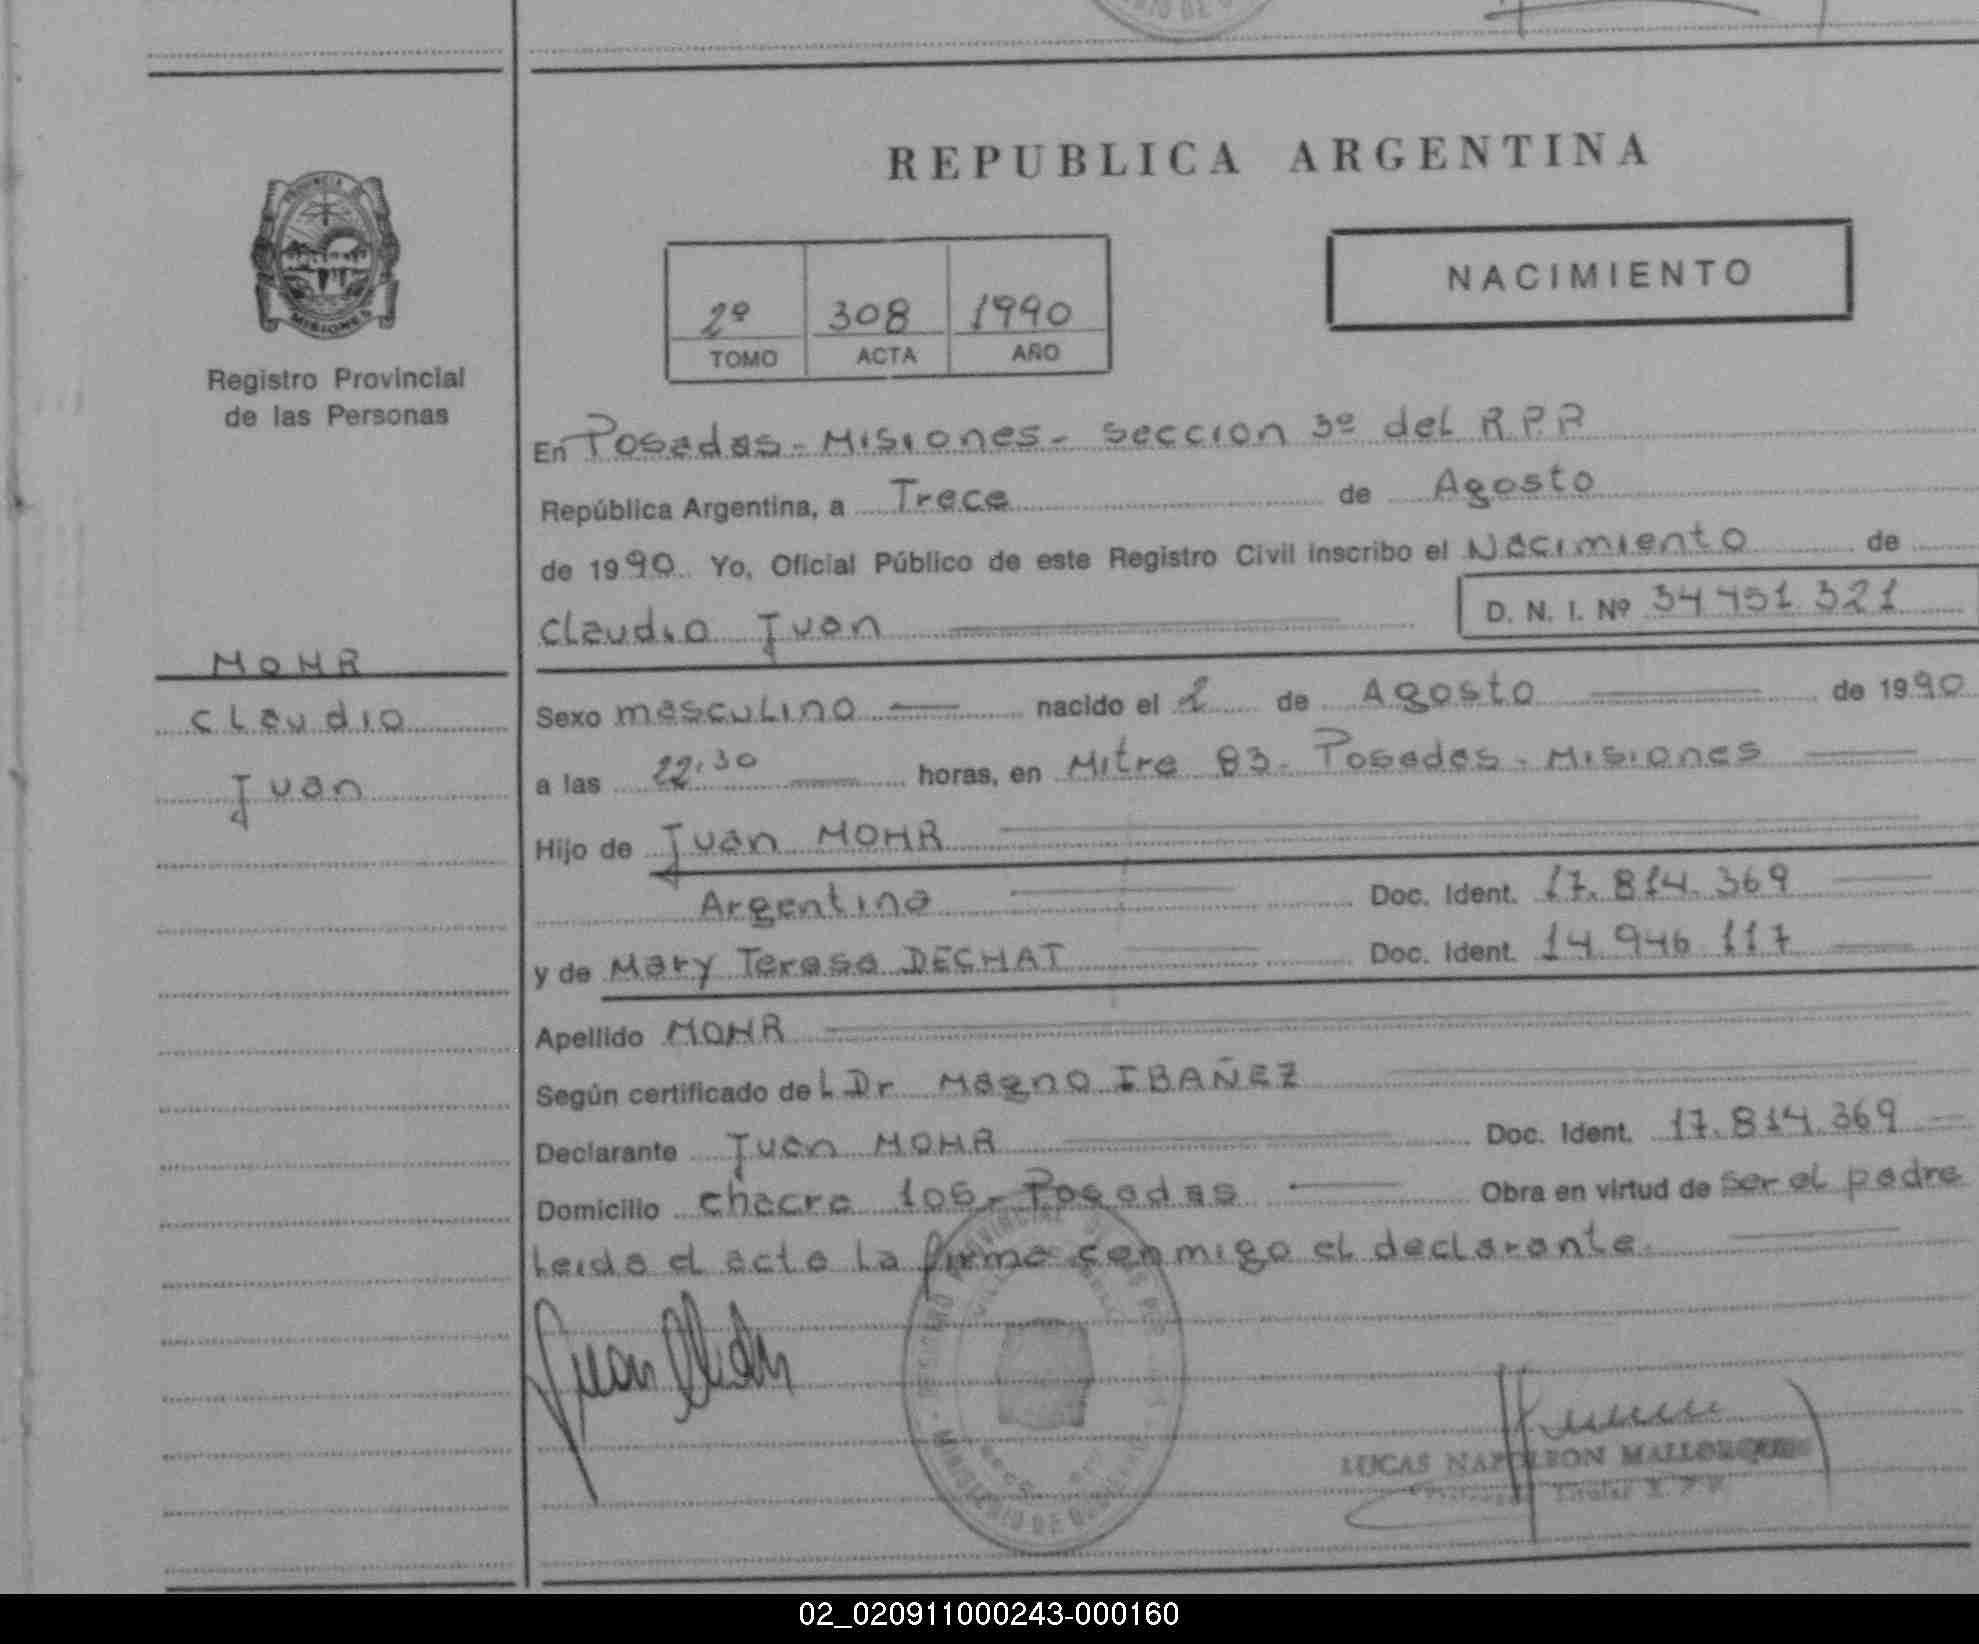 REPUBLICA ARGENTINA
NACIMIENTO
2º 308 1990
TOMO ACTA AÑO
MISIONES
Registro Provincial
de las Personas
En Posadas - Misiones - seccion 3º del R P P
República Argentina, a Trece de Agosto
de 1990. Yo, Oficial Público de este Registro Civil inscribo el Nacimiento de
Claudio Juan D. N. I. Nº 34 451 321
MOHR
Claudio
Juan
Sexo masculino nacido el 2 de Agosto de 1990
a las 22:30 horas, en Mitre 83 - Posadas - Misiones
Hijo de Juan MOHR
Argentino Doc. Ident. 17.814.369
y de Mary Teresa DECHAT Doc. Ident. 14.946.117
Apellido MOHR
Según certificado del Dr Magno IBAÑEZ
Declarante Juan MOHR Doc. Ident. 17.814.369
Domicilio chacra 106 - Posadas Obra en virtud de ser el padre
Leida el acta la firma conmigo el declarante.
Juan
LUCAS NAPOLEON
Titular
MINISTERIO DE
02_020911000243-000160